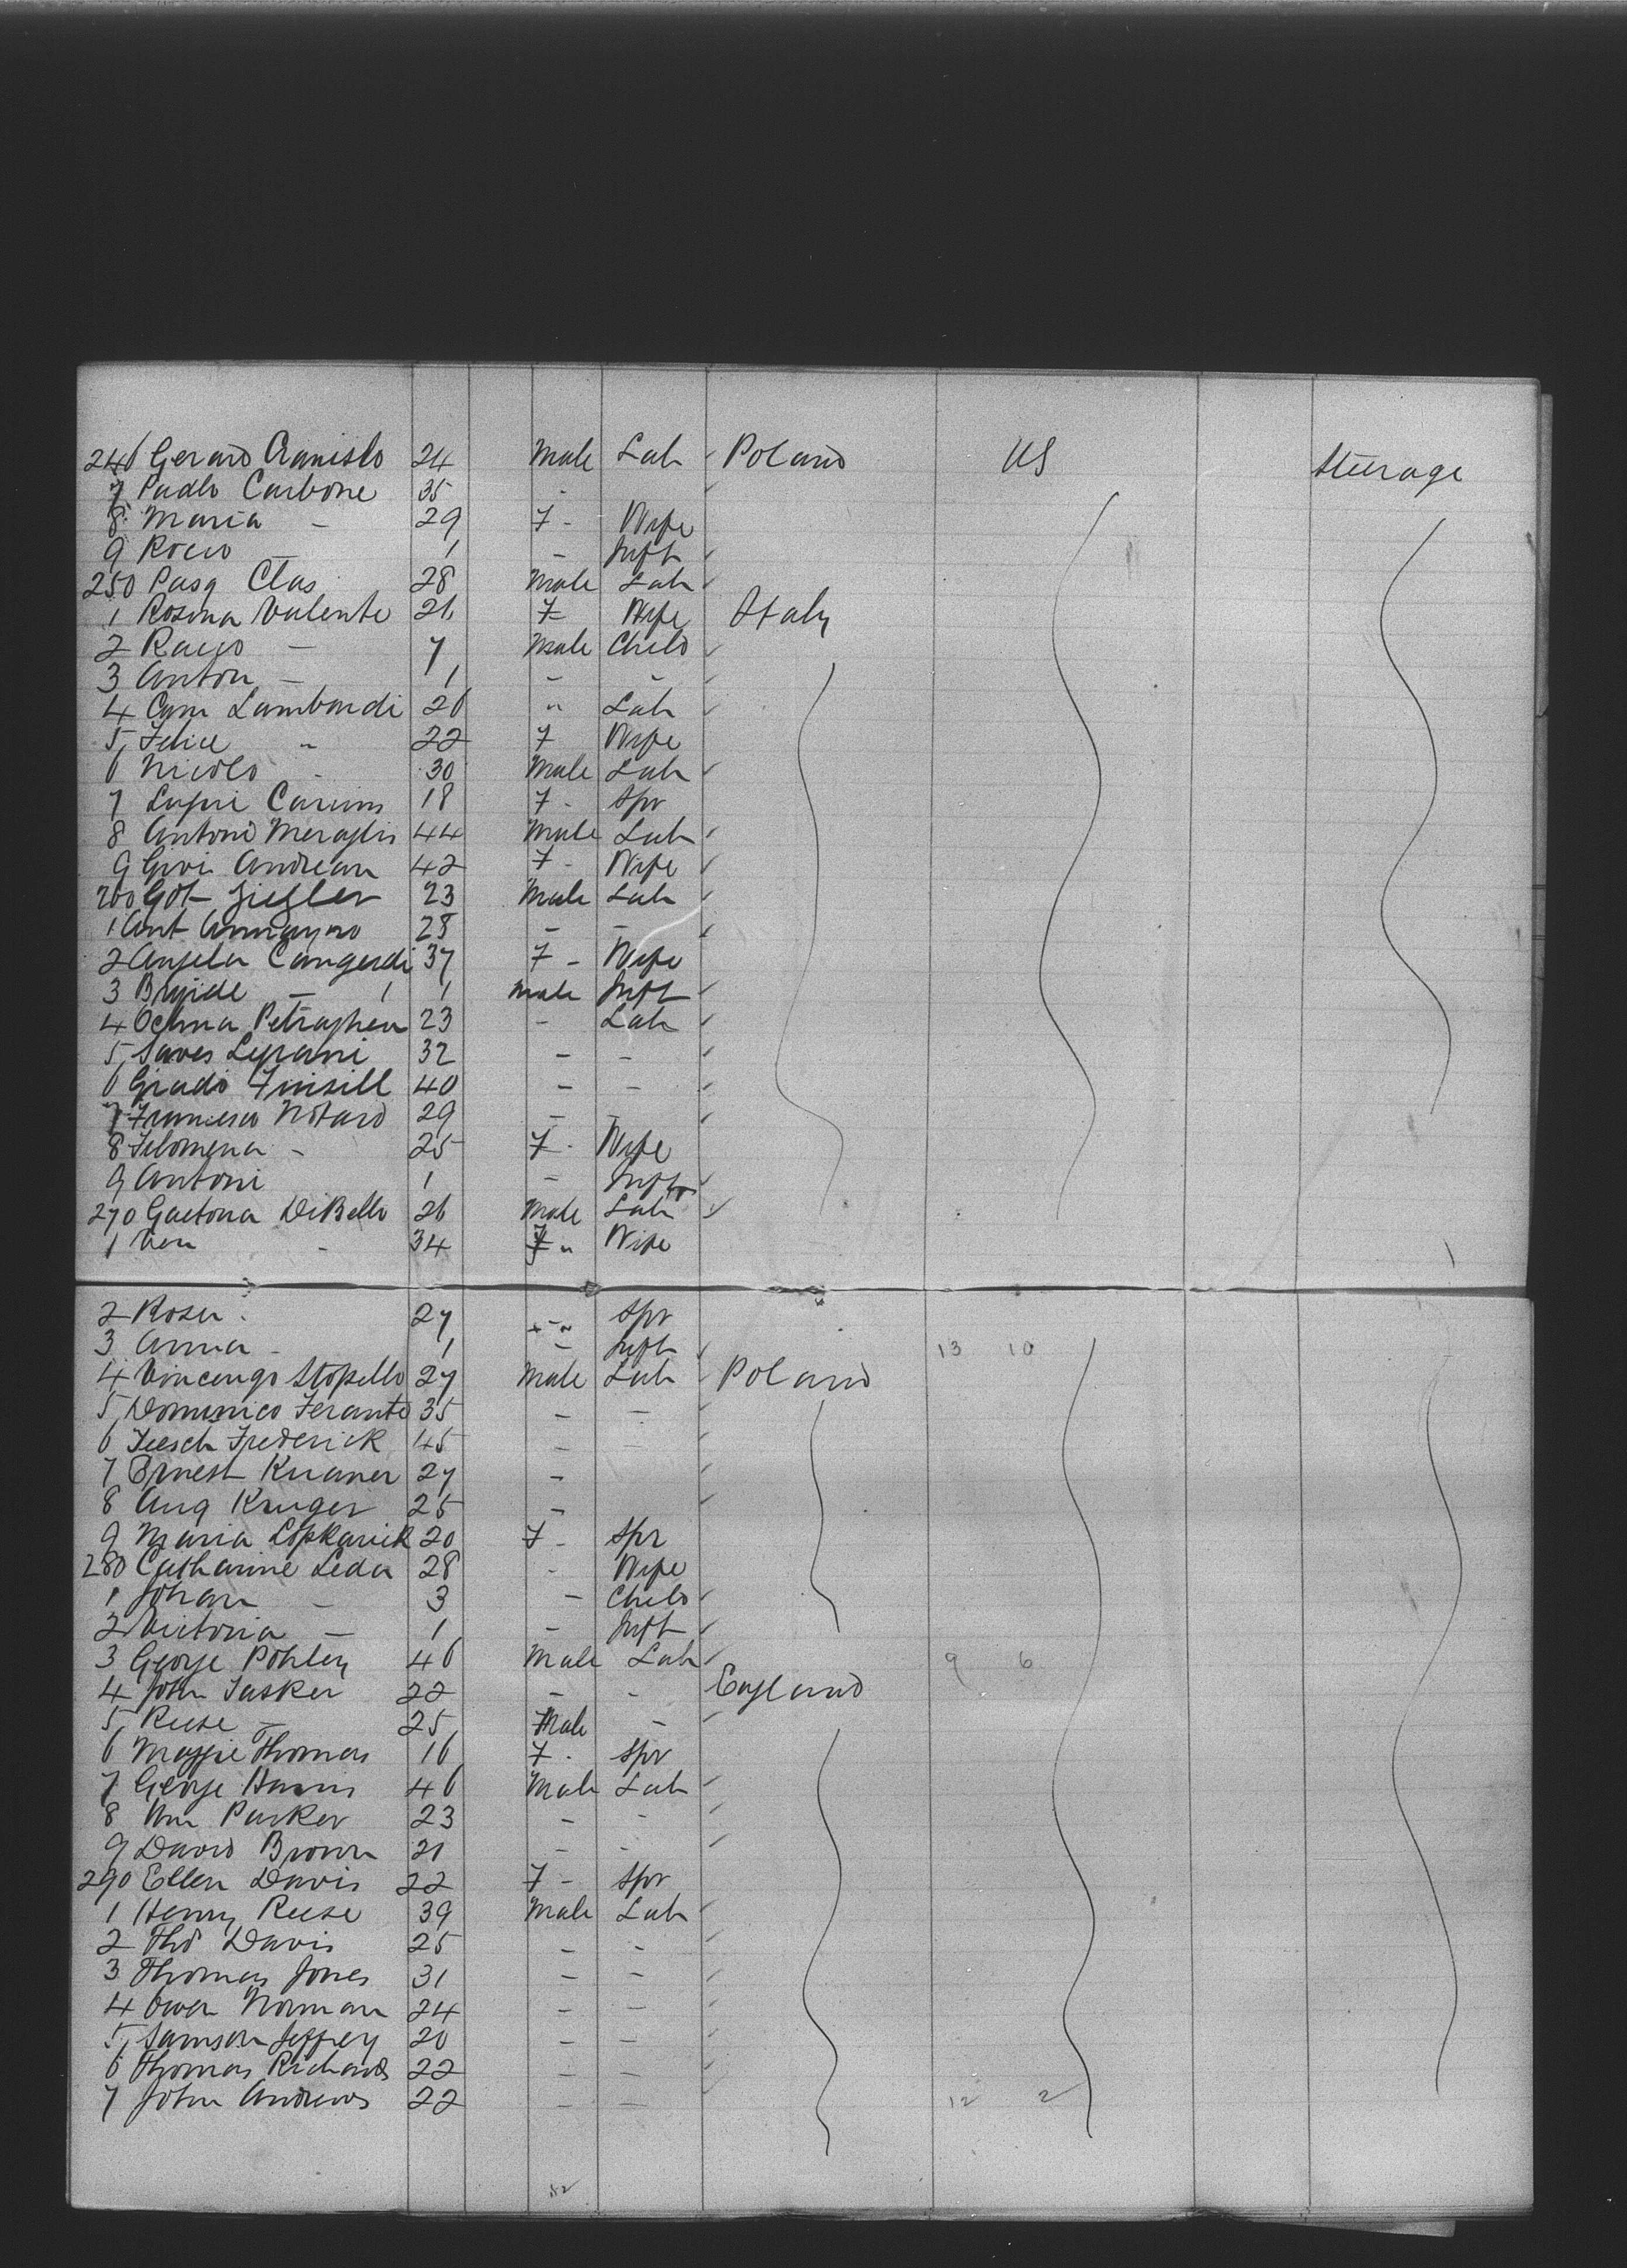 246 Gerard 24 Male Lab Poland US Steerage
7 Paolo Carbone 35 -
8 Maria - 29 F - Wife
9 Rocco - 1 - Inft
250 Pasq Clas 28 Male Lab
1 Rosina Valente 26 F Wife Italy
2 - 7 Male Child
3 Anton - 1 - -
4 Cam Lambardi 26 " Lab
5 Felice " 22 F Wife
6 Nicolo - 30 Male Lab
7 18 F - Spr
8 Antonio 44 Male Lab
9 Giov Andrean 42 F - Wife
260 Got Ziegler 23 Male Lab
1 Ant 28 - -
2 Angela 37 F - Wife
3 - 1 1 Male Inft
4 23 - Lab
5 32 - -
6 40 - -
7 Francesco Notaro 29 - -
8 Filomena - 25 F - Wife
9 Antoni 1 - Inft
270 Gaetona DiBello 26 Male Lab
1 - 34 F " Wife
2 Rosa 27 " Spr
3 Anna - 1 - Inft 13 10
4 Vincenzo Stopello 27 Male Lab Poland
5 Dominico Feranto 35 - -
6 Frederick 45 - -
7 Ernest 27 -
8 Aug Kruger 25 -
9 Maria 20 F - Spr
280 Catharine Leda 28 - Wife
1 Johan - 3 - Child
2 Victoria - 1 - Inft
3 George Pohley 46 Male Lab 9 6
4 John Tasker 22 - - England
5 Reese - 25 Male -
6 Maggie Thomas 16 F - Spr
7 George Harris 46 Male Lab
8 Wm Parker 23 - -
9 David Brown 21 - -
290 Ellen Davis 22 F - Spr
1 Henry Reese 39 Male Lab
2 Tho Davis 25 - -
3 Thomas Jones 31 - -
4 Owen Norman 24 - -
5 Samson Jeffrey 20 - -
6 Thomas Richards 22 - -
7 John Andrews 22 - - 12 2